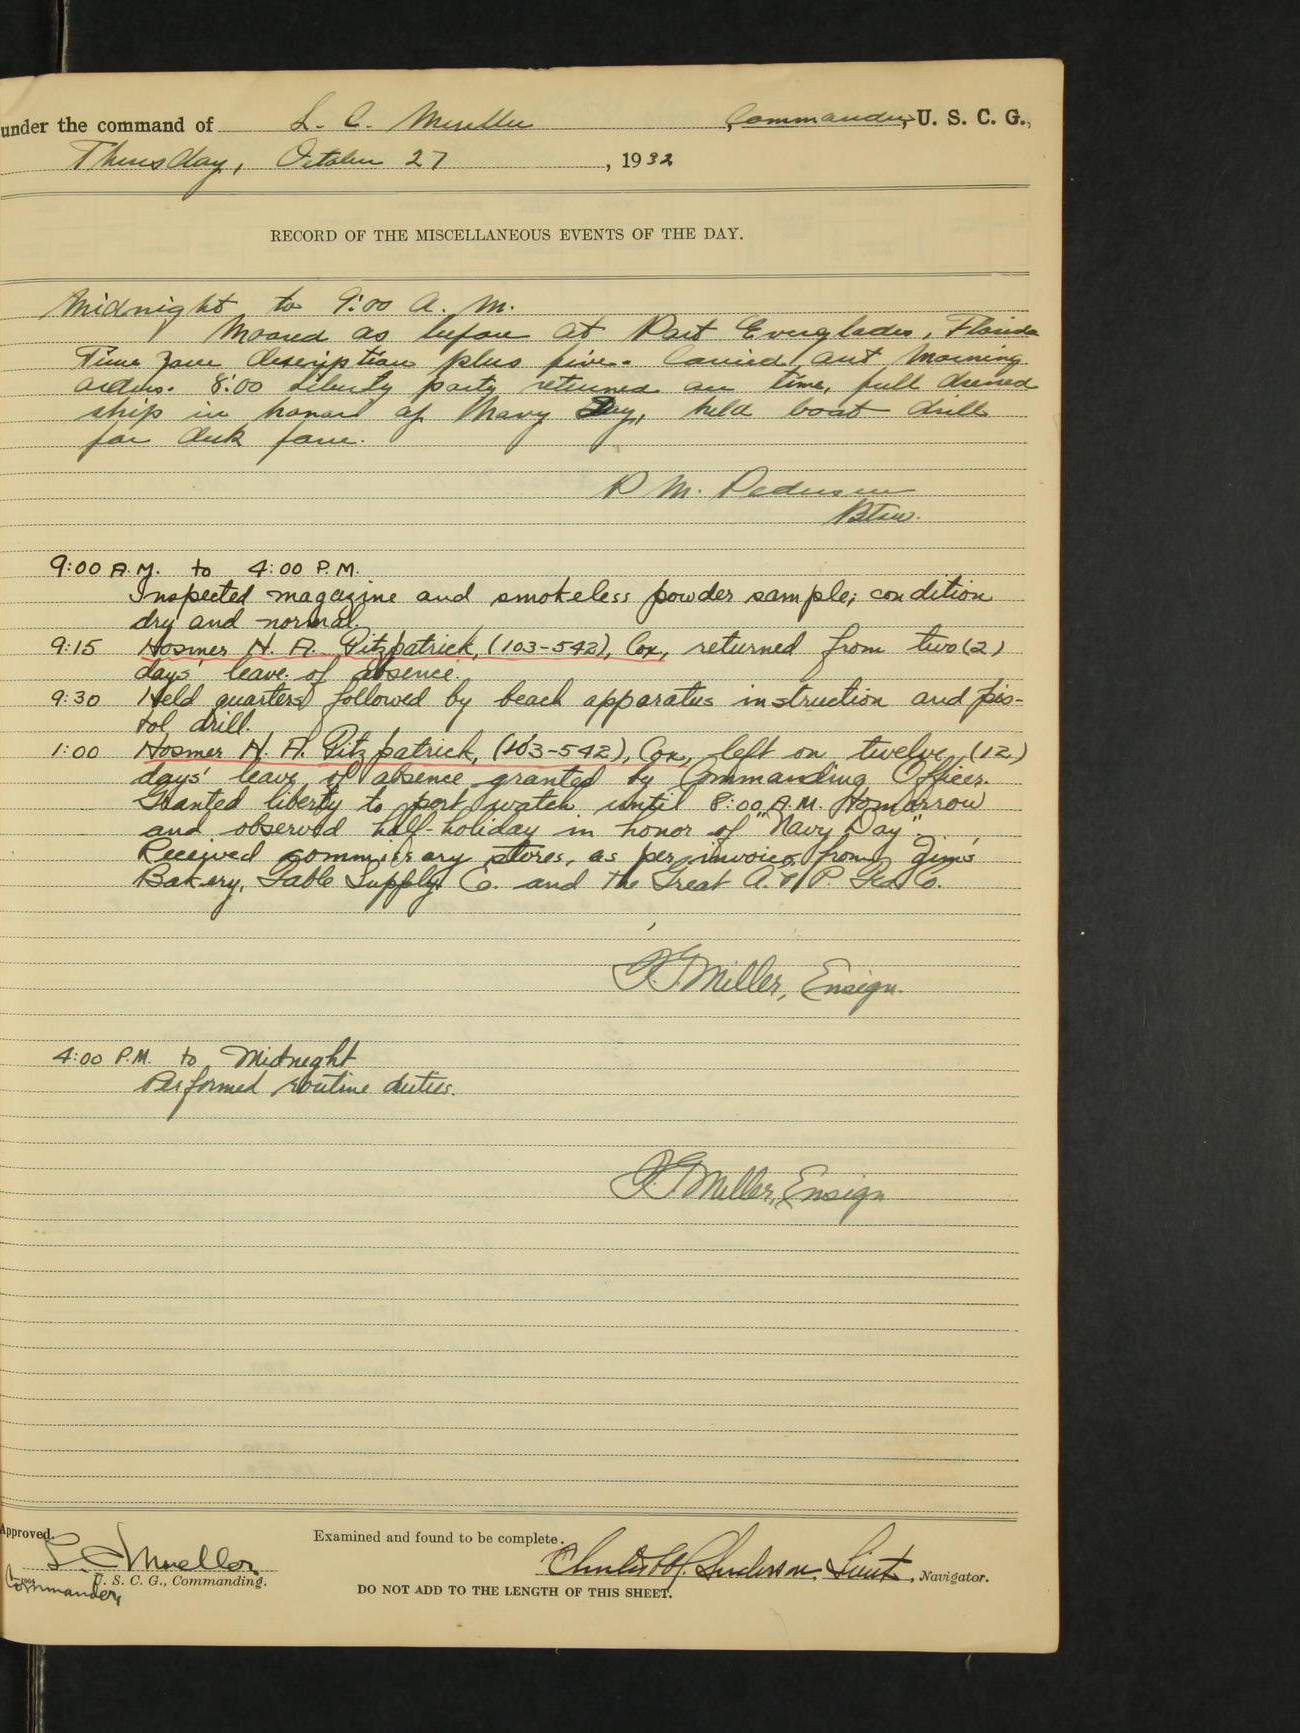 under the command of L. C. Mueller Commander, U. S. C. G.,
Thursday, October 27, 1932
RECORD OF THE MISCELLANEOUS EVENTS OF THE DAY.
Midnight to 9:00 A. M.
Moored as before at Port Everglades, Florida
Time zone description plus five. Carried out morning
orders. 8:00 Liberty party returned on time, full dressed
ship in honor of Navy Day, held boat drill
for deck force.
P. M. Pedersen
Btsw.
9:00 A.M. to 4:00 P.M.
Inspected magazine and smokeless powder sample; condition
dry and normal.
9:15 Hosmer H. A. Fitzpatrick, (103-542), Cox, returned from two (2)
days' leave of absence.
9:30 Held quarters followed by beach apparatus instruction and pis-
tol drill.
1:00 Hosmer H. A. Fitzpatrick, (103-542), Cox, left on twelve (12)
days' leave of absence granted by Commanding Officer.
Granted liberty to port watch until 8:00 A.M. tomorrow
and observed half-holiday in honor of "Navy Day".
Received commissary stores, as per invoices from Jim's
Bakery, Table Supply Co. and the Great A. & P. Tea Co.
Miller, Ensign.
4:00 P.M. to Midnight
Performed routine duties.
Miller, Ensign
Approved. Examined and found to be complete.
L. C. Mueller Charles W. Lieut, Navigator.
Commander, U. S. C. G., Commanding.
DO NOT ADD TO THE LENGTH OF THIS SHEET.